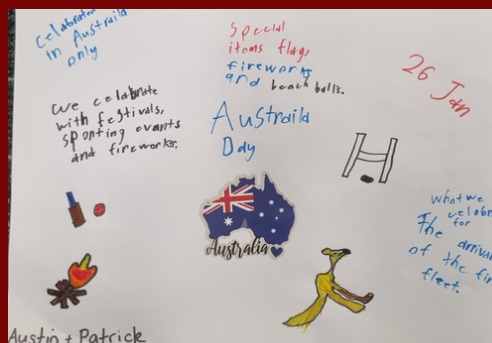 celebrated
in Austraila
only
Special
items flags,
fireworks
and beach balls.
26 Jan
we celebrate
with festivals,
sporting evants
and fireworks.
Austraila
Day
what we
celebr
for
The arriva
of the fir
fleet.
Australia
Austin + Patrick